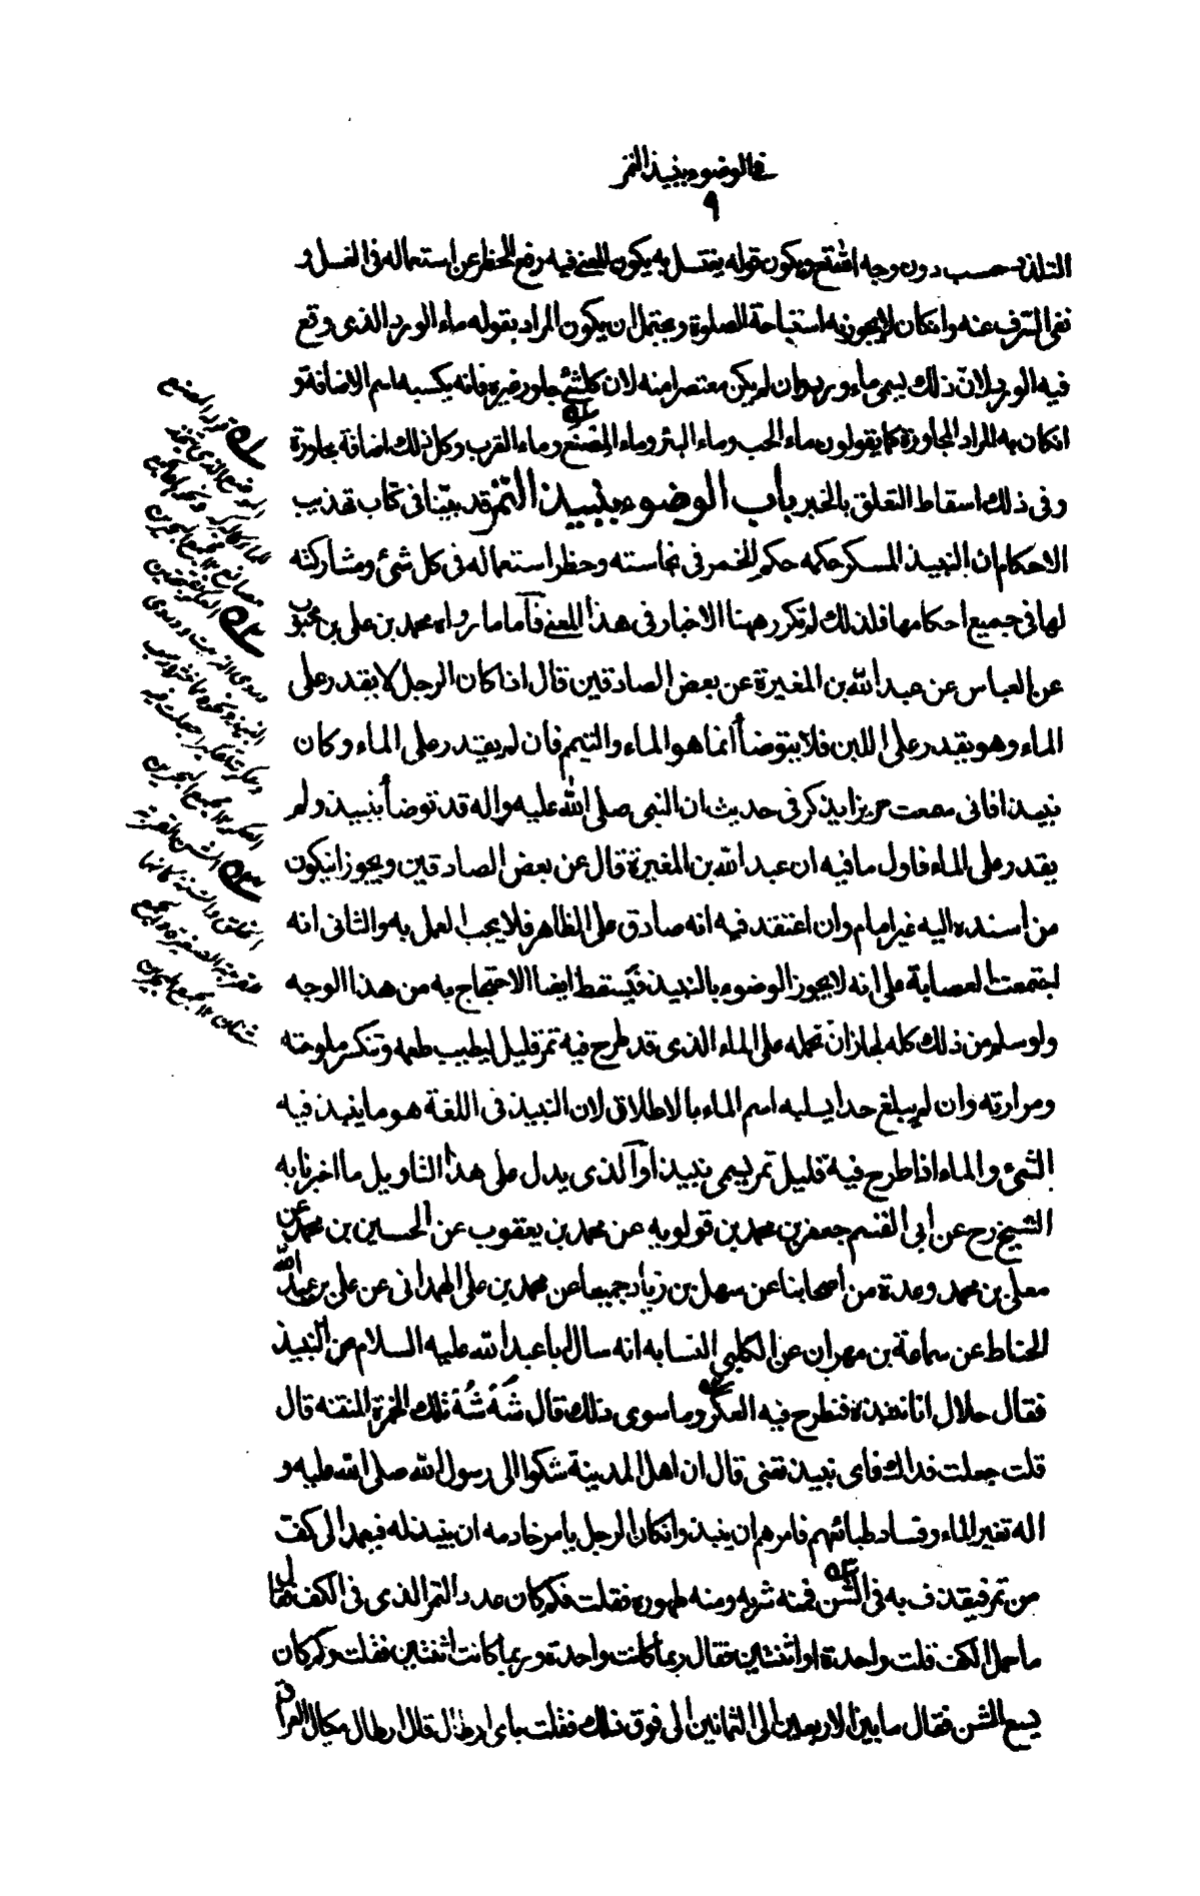 في الوضوء بنبيذ التمر
٩
التلذذ حسب دون وجه اخر ويكون قوله يغتسل به يكون المعنى فيه رفع الحظر عن استعماله في الغسل و
نفى السرف عنه وان كان لا يجوز به استباحة الصلوة ويحتمل ان يكون المراد بقوله ماء الورد الذى وقع
فيه الورد لان ذلك يسمى ماء ورد وان لم يكن معتصرا منه لان كل شئ جاور غيره فانه يكسبه اسم الاضافة و
انكان به المراد المجاورة كما يقولون ماء الحب وماء البئر وماء المصنع وماء القرب وكل ذلك اضافة مجاورة
وفى ذلك اسقاط التعلق بالخبر باب الوضوء بنبيذ التمر قد بيّنا فى كتاب تهذيب
الاحكام ان النبيذ المسكر حكمه حكم الخمر فى نجاسته وحظر استعماله فى كل شئ ومشاركته
لها فى جميع احكامها فلذلك لم نكرر ههنا الاخبار فى هذا المعنى فأما ما رواه محمد بن على بن محبوب
عن العباس عن عبد الله بن المغيرة عن بعض الصادقين قال اذا كان الرجل لا يقدر على
الماء وهو يقدر على اللبن فلا يتوضأ انما هو الماء والتيمم فان لم يقدر على الماء وكان
نبيذا فانى سمعت حريزا يذكر فى حديث ان النبى صلى الله عليه واله قد توضأ بنبيذ ولم
يقدر على الماء فاول ما فيه ان عبد الله بن المغيرة قال عن بعض الصادقين ويجوز ان يكون
من أسنده اليه غير امام وان اعتقد فيه انه صادق على الظاهر فلا يجب العمل به والثانى انه
اجتمعت العصابة على انه لا يجوز الوضوء بالنبيذ فيسقط ايضا الاحتجاج به من هذا الوجه
ولو سلم من ذلك كله لجاز ان نحمله على الماء الذى قد طرح فيه تمر قليل ليطيب طعمه وتنكسر ملوحته
ومرارته وان لم يبلغ حدا يسلبه اسم الماء بالاطلاق لان النبيذ فى اللغة هو ما ينبذ فيه
الشئ والماء اذا طرح فيه قليل تمر يسمى نبيذا والذى يدل على هذا التاويل ما اخبرنا به
الشيخ رح عن ابى القسم جعفر بن محمد بن قولويه عن محمد بن يعقوب عن الحسين بن محمد عن
معلى بن محمد وعدة من اصحابنا عن سهل بن زياد جميعا عن محمد بن على الهمدانى عن على بن عبد الله
الحناط عن سماعة بن مهران عن الكلبى النسابه انه سال ابا عبد الله عليه السلام عن النبيذ
فقال حلال انا ننبذه فنطرح فيه العكر وما سوى ذلك قال شَهْ شَهْ تلك الخمرة المنتنه قال
قلت جعلت فداك فاى نبيذ تعنى قال ان اهل المدينة شكوا الى رسول الله صلى الله عليه و
اله تغير الماء وفساد طبائعهم فامرهم ان ينبذوا فكان الرجل يامر خادمه ان ينبذ له فيعمد الى كف
من تمر فيقذف به فى الشن فمنه شربه ومنه طهوره فقلت فكم كان عدد التمر الذى فى الكف فقال
ما حمل الكف قلت واحدة او اثنتين فقال ربما كانت واحدة وربما كانت اثنتين فقلت وكم كان
يسع الشن فقال ما بين الاربعين الى الثمانين الى فوق ذلك فقلت باى ارطال قال ارطال مكيال العراق